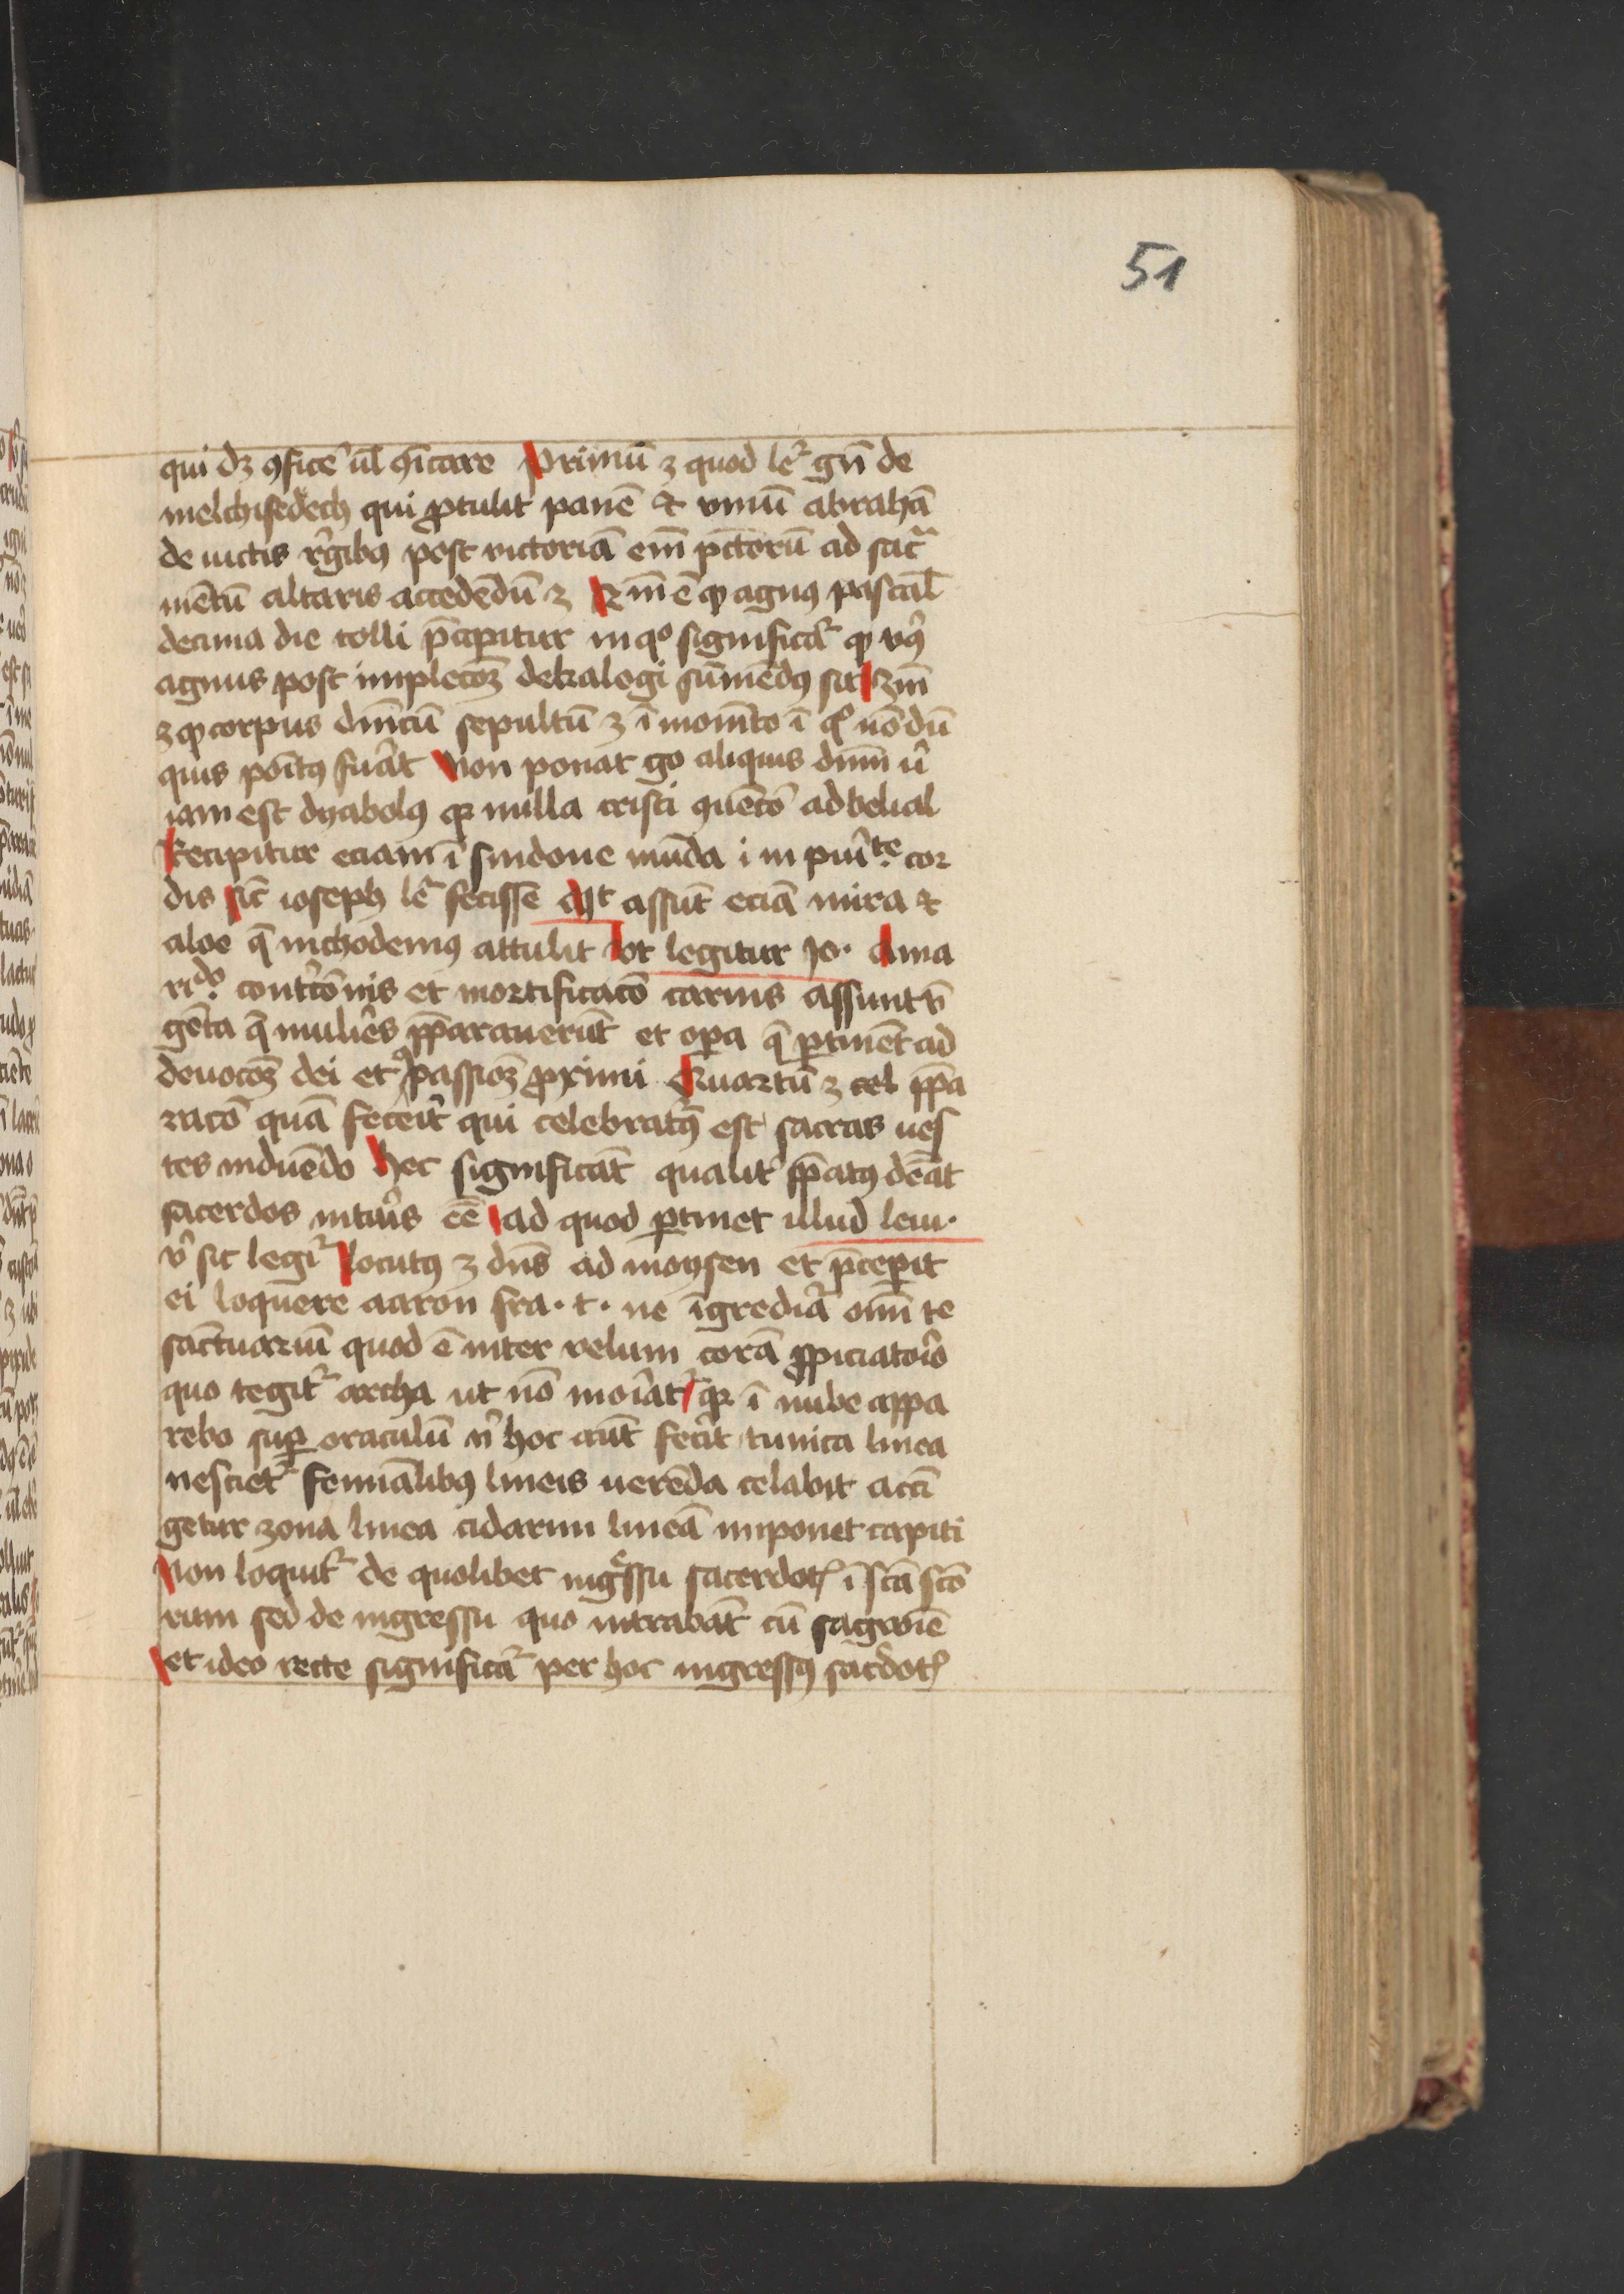 51
qui dꝫ ꝯficẽ ul̃ ꝯĩcare Primũ ꝫ quod le᷑ gñ de
melchisedech qui ꝓtulit panẽ et vinũ abrahã
de uictis re᷑gibꝰ post victoriã em̃ pc̃torũ ad sacᷓ
mẽtũ altaris accedẽdũ ꝫ 2m̃ ẽ qꝫ agnꝰ pascal̃
decima die tolli p̃cipitur in qͦ significat᷑ qꝫ vꝰ᷑
agnus post implecoꝫ̃ dekalogi sũmẽdꝰ sit 3m̃
ꝫ qꝫ corpus dñicũ sepultũ ꝫ ĩ moñto ĩ qͦ nõdũ
quis poĩtꝰ fuãt Non ponat go aliquis dñm u᷑
iam est dyabolꝰ qꝛ nulla cristi ꝯuẽcõ ad belial
Recipitur eciam ĩ sindone mũda i in puĩᵗᵉ cor
dis sic̃ ioseph le᷑ fecisse Aſt assũt eciã mirra et
aloe q̃ nichodemꝰ attulit vt legitur Jo· Ama
rᵈᵒ contᷓcõnis et mortificacõ carnis assunt v̄
gẽta q̃ muliẽs pp̃arauerũt et opa q̃ ꝑtinẽt ad
deuocoꝫ̃ dei et ꝯpassioꝫ̃ ꝓximi Quartũ ꝫ cel pp̃a
racõ quã feceit᷑ qui celebratꝰ᷑ est sacras ues
tes induẽdo Hec significãt qualit᷑ pp̃atꝰ dẽat
sacerdos intᷓis eẽ ad quod ꝑtinet illud leui·
v᷑ sic legit᷑ Locutꝰ ꝫ dñs ad moysen et p̃cepit
ei loquere aaron fra· t· ne ĩgrediat᷑ om̃ te
sanctuariũ quod ẽ inter velum corã ꝓpiciatoĩo
quo tegit᷑ archa ut nõ moĩat᷑ qꝛ ĩ nube appa
rebo suꝑ oraculũ n᷑ hoc aũt fecit᷑ tunica linea
uestiet᷑ feminãlibꝰ lineis uerẽda celabit acci
getur zona linea cidarim lineã imponet capiti
Non loquit᷑ de quolibet ingͤssu sacerdotꝭ ĩ sc̃a sc̃o
rum sed de ingressu quo intrabãt cũ sagwiẽ
et ideo recte significat᷑ per hoc ingressꝰ sac᷑dotꝭ